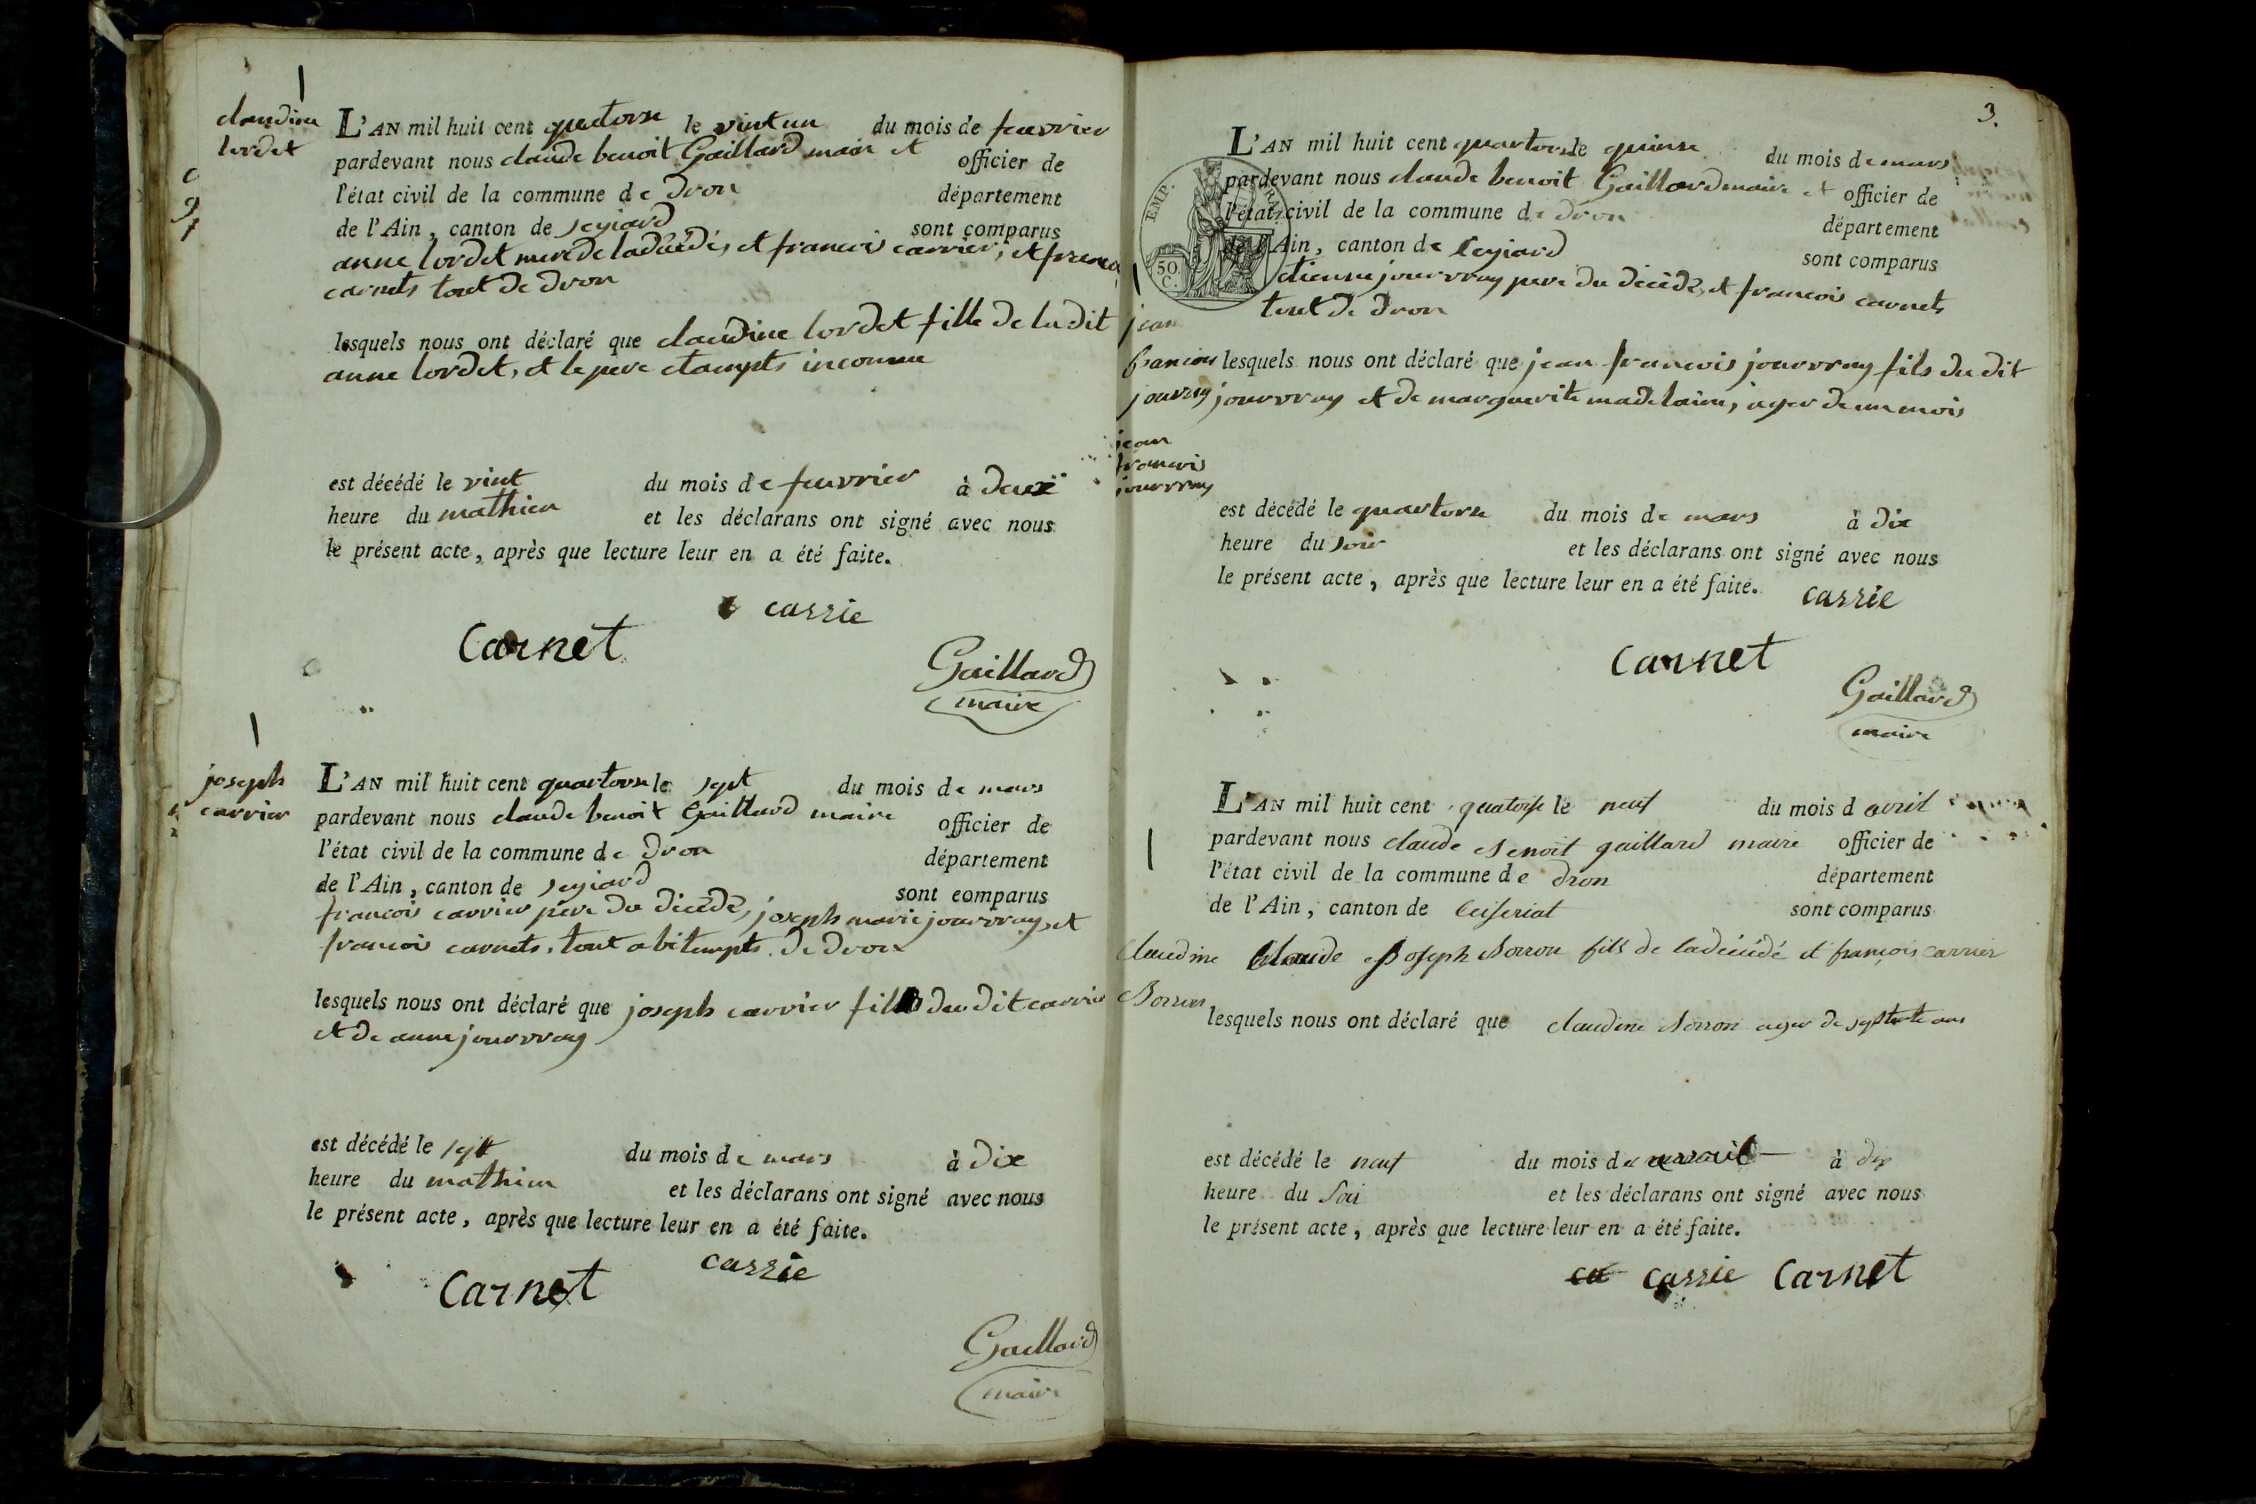 claudine
lordet
L'AN mil huit cent quatorse le vint un du mois de feuvrier
pardevant nous claude benoit Gaillard maire et officier de
l'état civil de la commune de dron département
de l'Ain, canton de seyiard sont comparus
anne lordet mere de la décédé, et francois carrier, et francois
carnets tout de dron
lesquels nous ont déclaré que claudine lordet fille de la dit
anne lordet, et le pere etampts inconnue
est décédé le vint du mois de feuvrier à deux
heure du mathien et les déclarans ont signé avec nous
le présent acte, après que lecture leur en a été faite.
cassie
Carnet
Gaillard
maire
joseph
carrier
L'AN mil huit cent quartorse le sept du mois de mars
pardevant nous claude benoit Gaillard maire officier de
l'état civil de la commune de dron département
de l'Ain, canton de seyiard sont comparus
francois carrier père du décédé, joseph marie jourvray, et
francois carnets, tout abitempts de dron
lesquels nous ont déclaré que joseph carrier fils du dit carrier
et de anne jourvray
est décédé le sept du mois de mars à dix
heure du mathien et les déclarans ont signé avec nous
le présent acte, après que lecture leur en a été faite.
cassie
Carnet
Gaillard
maire
3.
L'AN mil huit cent quartorse le quinse du mois de mars
pardevant nous claude benoit Gaillard maire et officier de
l'état civil de la commune de dron département
de l'Ain, canton de seyiard sont comparus
EMP.
50.
C.
etienne jourvray pere du décédé, et francois carnets
tout de dron
jean
francois
jouvray
lesquels nous ont déclaré que jean francois jourvray fils du dit
jourvray et de marguerite madelaine, ager de un mois
jean
francois
jourvray
est décédé le quartorse du mois de mars à dix
heure du soir et les déclarans ont signé avec nous
le présent acte, après que lecture leur en a été faite.
cassie
Carnet
Gaillard
maire
L'AN mil huit cent quatorse le neuf du mois d avril
pardevant nous claude Benoit gaillard maire officier de
l'état civil de la commune de dron département
de l'Ain, canton de ceiseriat sont comparus
Claudine
Borron
Claude Joseph Borron fils de la décédé et françois carrier
lesquels nous ont déclaré que claudine Borron ager de septente ans
est décédé le neuf du mois de avril à dix
heure du soir et les déclarans ont signé avec nous
le présent acte, après que lecture leur en a été faite.
ca cassie Carnet